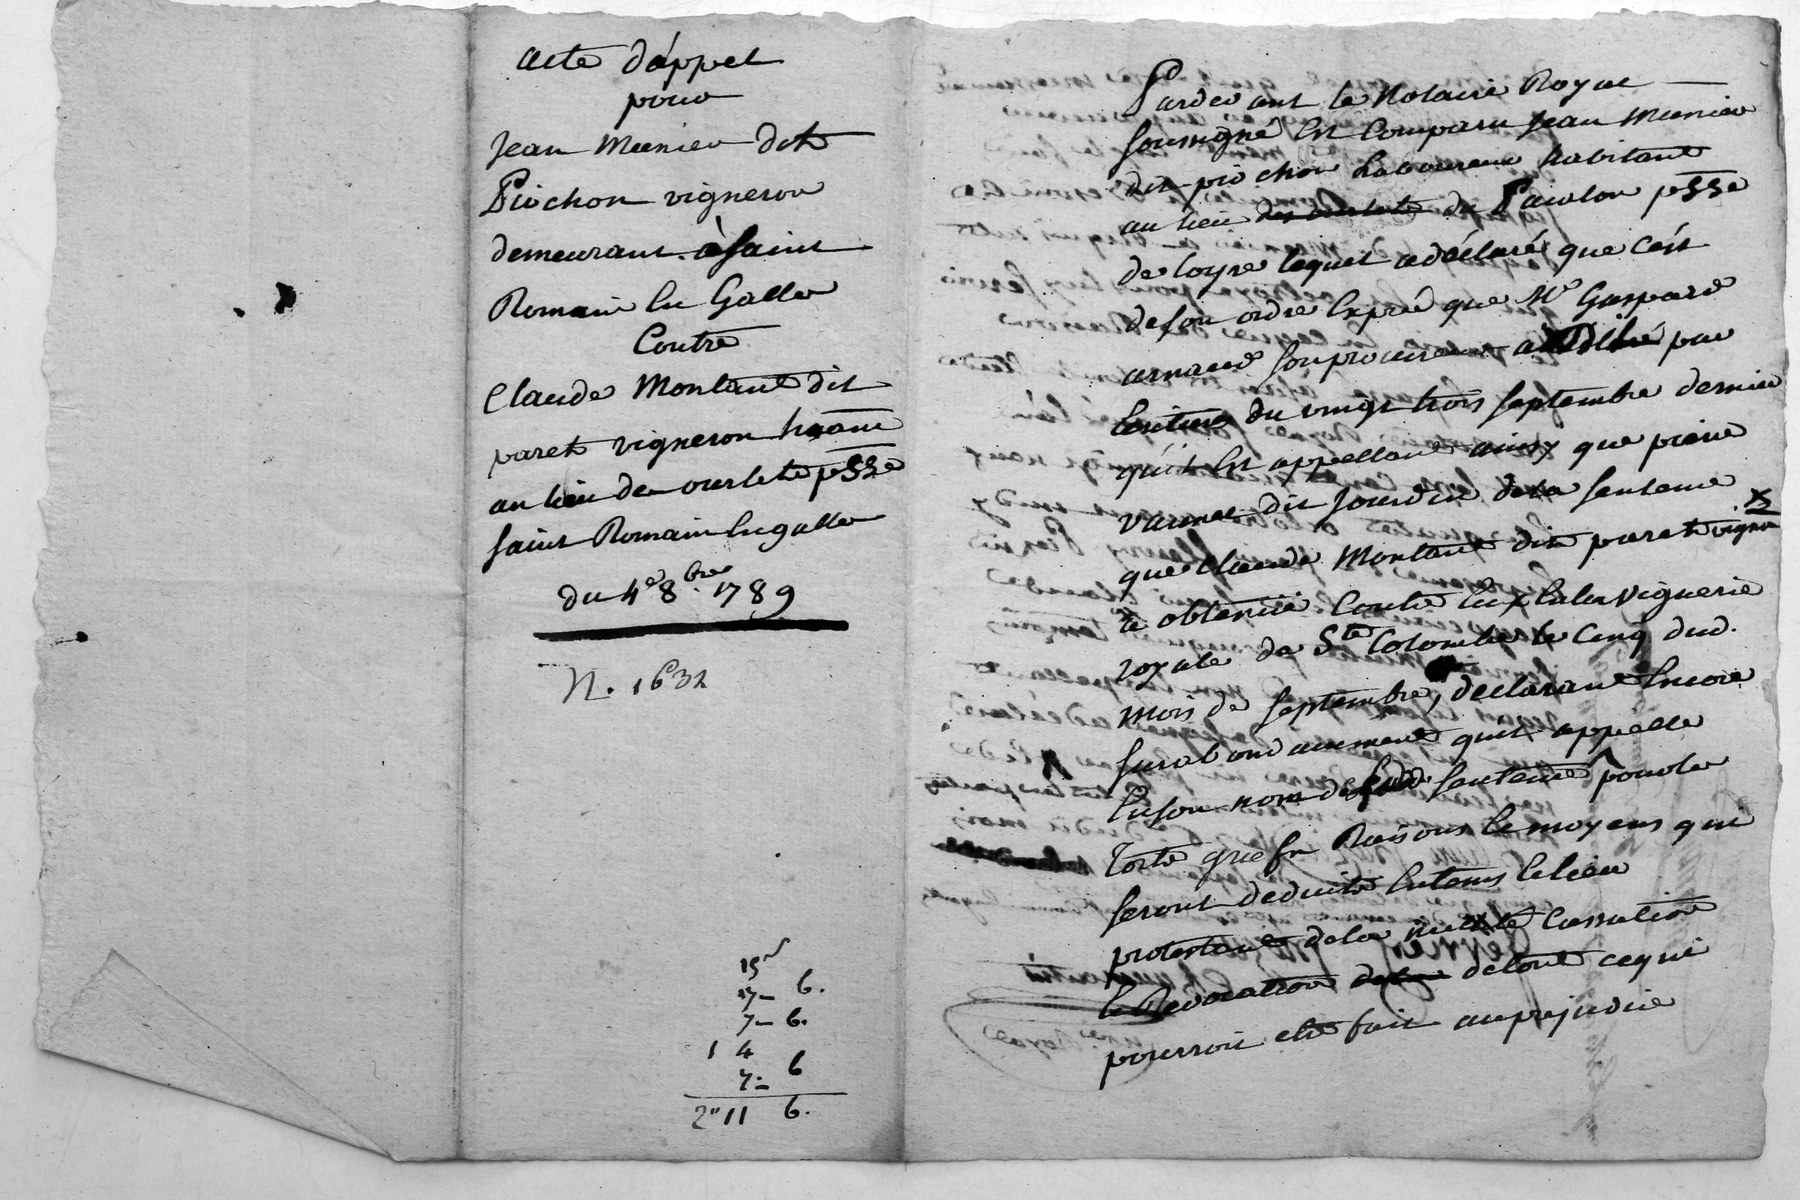 acte d'appel
pour
Jean Meunier dit
Piochon vigneron
demeurant à Saint
Romain En Galler
Contre
Claude Montant dit
paret vigneron hant
au lieu de ourlete psse
saint Romain En galler
du 4e 8bre 1789
N. 1632
15s
7 - 6.
7 - 6.
1 4
7 - 6
2" 11 6.
Pardevant le Notaire Royal
soussigné Est Comparu Jean Meunier
dit piochon Laboureur habitant
au lieu de Pavolon psse
de loyre lequel a déclaré que c'est
de son ordre Exprès que Me Gaspard
arnaud son procureur a par
du vingt trois septembre dernier
qu'il Est appellant ainsy que pierre
dit Jourdin de la sentence
que Claude Montant dit paret vigneron
a obtenüe Contre Eux En la viguerie
royale de Ste Colombe le Cinq dud.
mois de septembre, déclarant Encore
surabondamment qu'il appelle
En son nom de lad. sentence pour les
torts griefs Raisons Et moyens qui
seront deduits En tems Et lieu
protestant de la nullité Cassation
Et Revocation de tout ce qui
pourroit etre fait au prejudice